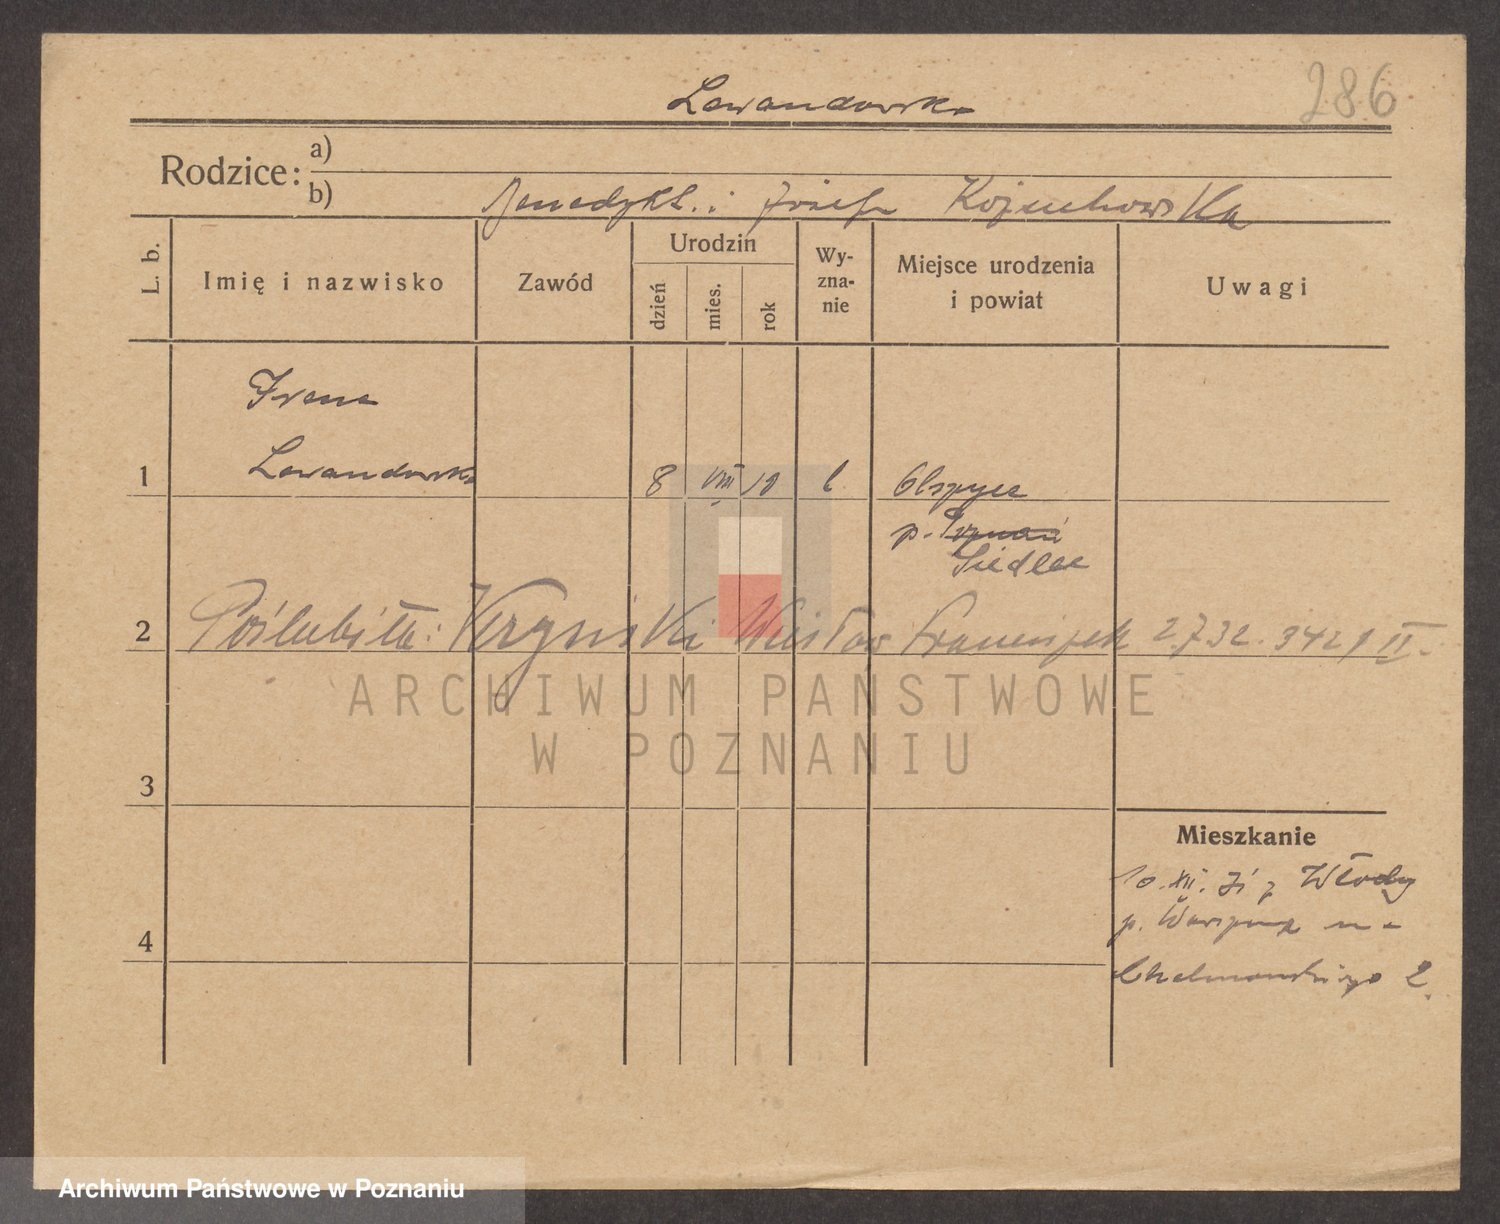 286
Lewandowska
Rodzice: a)
b) Benedykt i Józefa Kożuchowska
L. b.
Imię i nazwisko
Zawód
Urodzin
dzień
mies.
rok
Wy-
zna-
nie
Miejsce urodzenia
i powiat
Uwagi
Irena
1 Lewandowska 8 VIII 10
p. Poznań
Siedlce
2 Poślubiła: Franciszek 2.7.32. 342/II.
ARCHIWUM PAŃSTWOWE
W POZNANIU
3
Mieszkanie
10.XII.31 z Włody
p. na
4
Chełmońskiego 2.
Archiwum Państwowe w Poznaniu